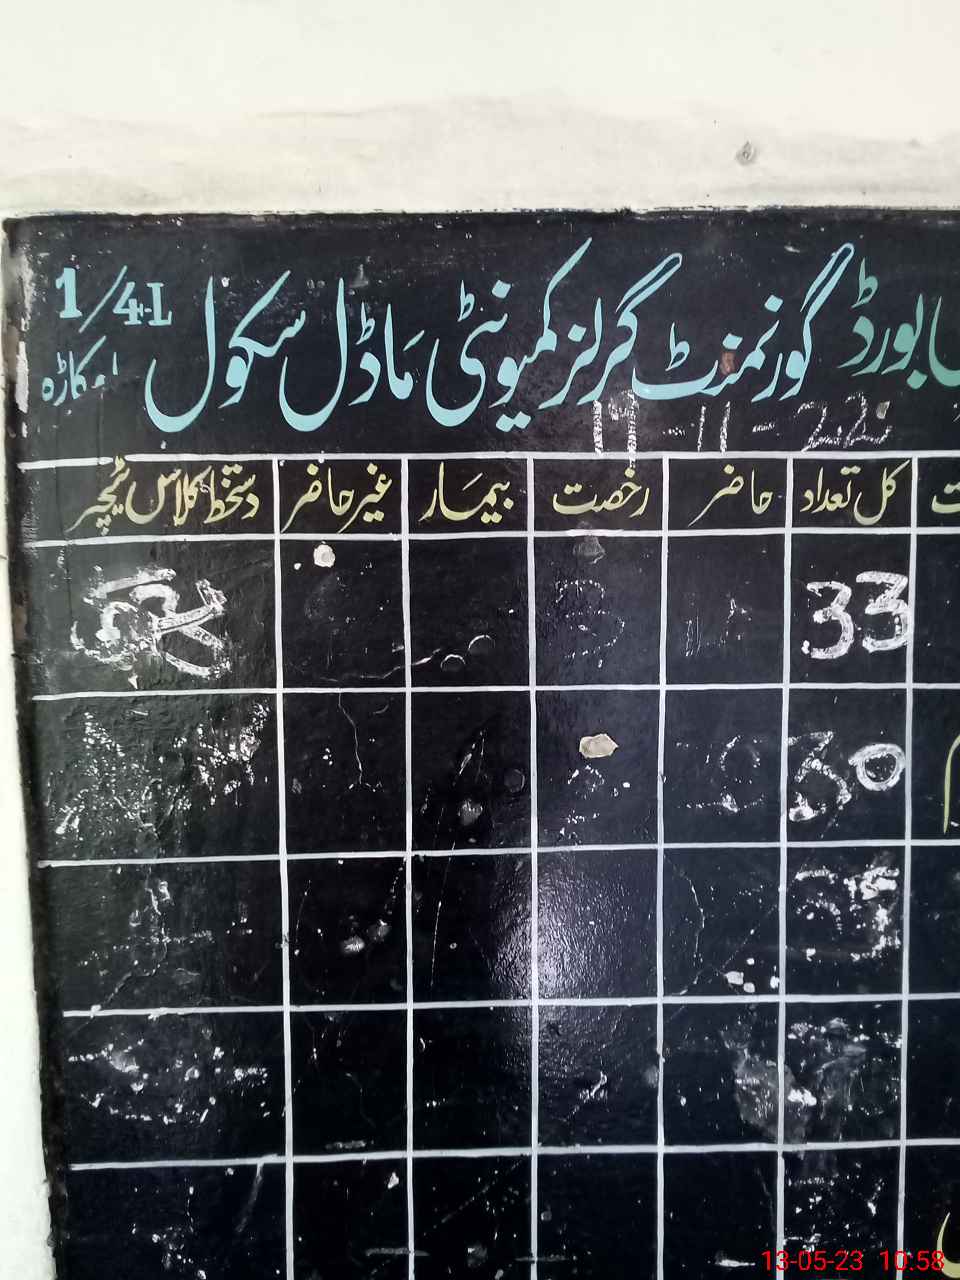 بورڈ گورنمنٹ گرلز کمیونٹی ماڈل سکول 1/4-L
اوکاڑہ
کل تعداد حاضر رخصت بیمار غیر حاضر دستخط کلاس ٹیچر
33
30
13-05-23 10:58